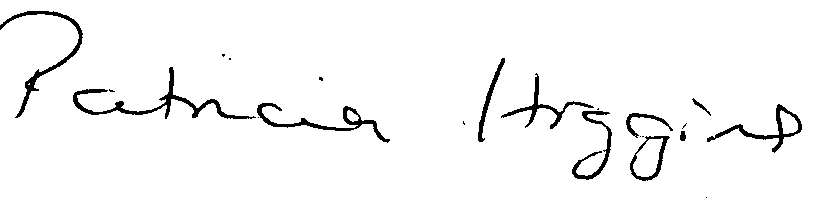 Patricia Higgins